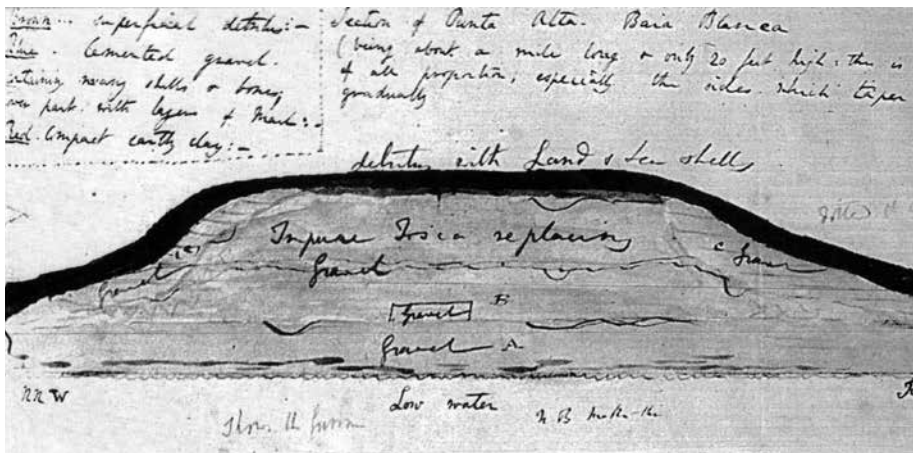 Brown .. superficial detritus :-
Blue . Cemented gravel.
containing many shells & bones,
over part. with layers of Marl :-
Red. Compact earthy clay :-
Section of Punta Alta. Baia Blanca
(being about a mile long & only 20 feet high: this is
of all proportion, especially the sides which taper
gradually
detritus with Land & Sea shells
Impure Tosca replacing
Gravel
Gravel
C Gravel
Gravel B
Gravel A
NNW
Low water
N B